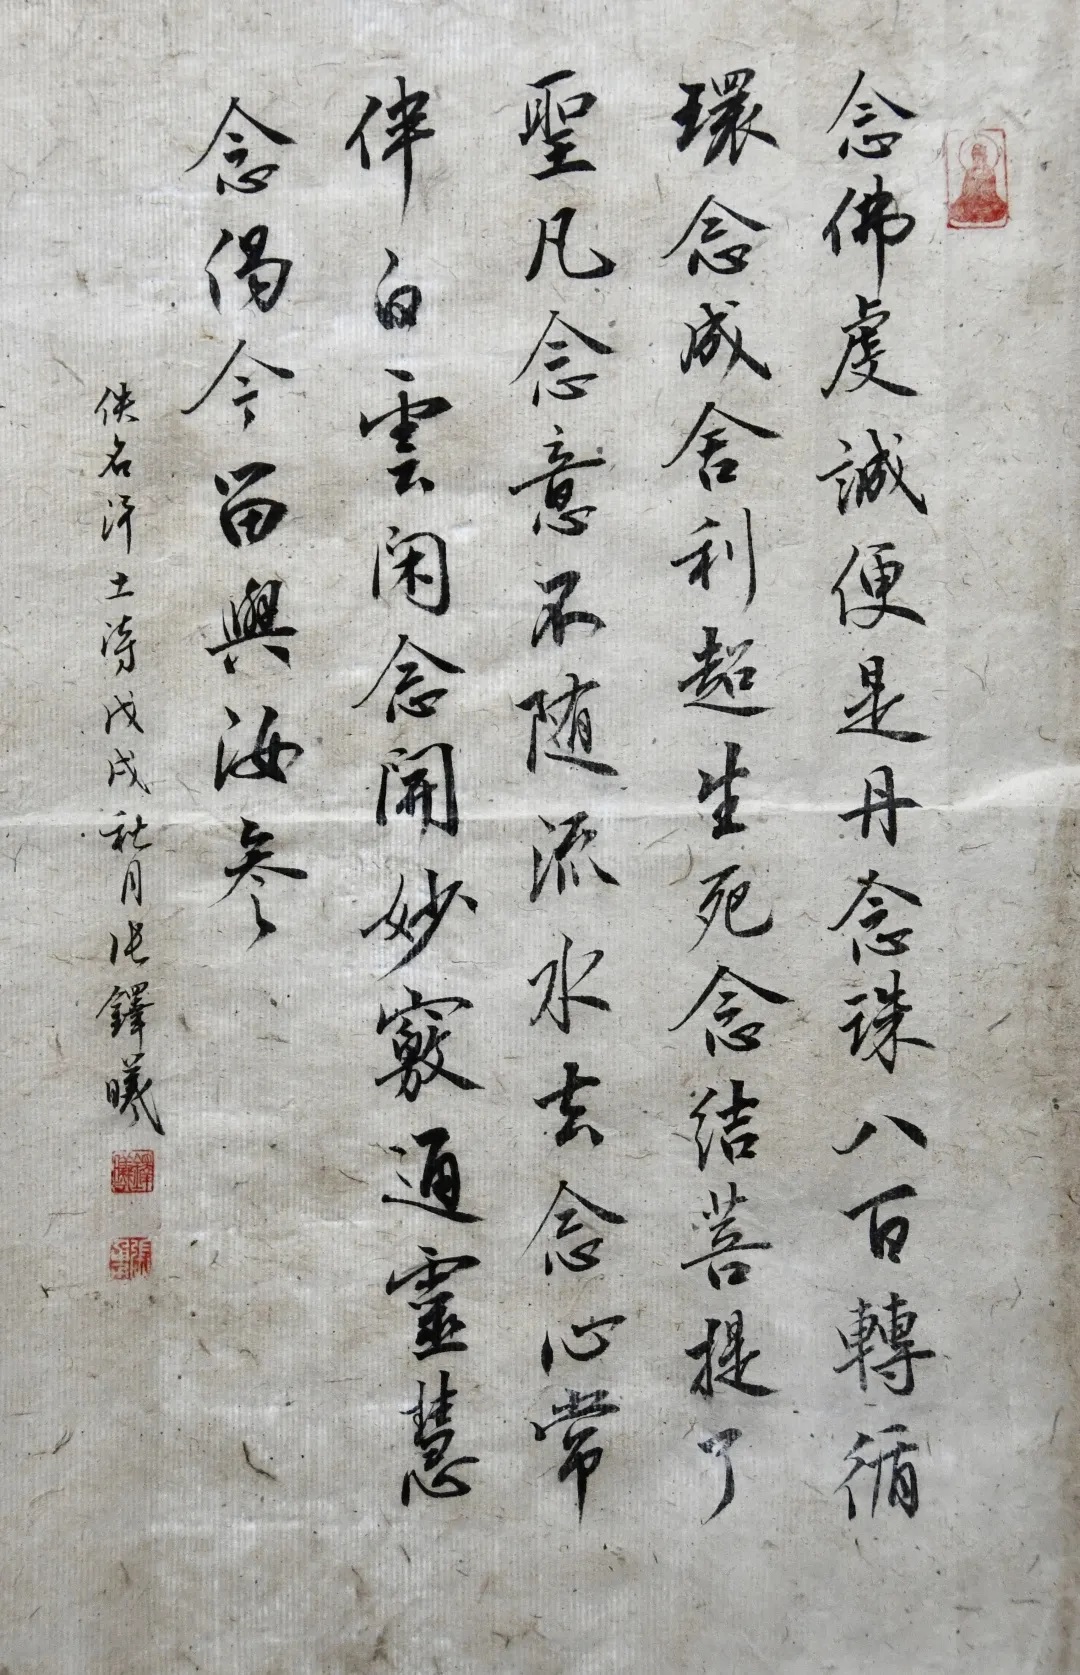 念佛虔誠便是丹念珠八百轉循
環念成舍利超生死念結菩提了
聖凡念意不随流水去念心常
伴白雲闲念開妙竅通靈慧
念偈今留與汝参
佚名净土詩戊戌秋月张鐸曦